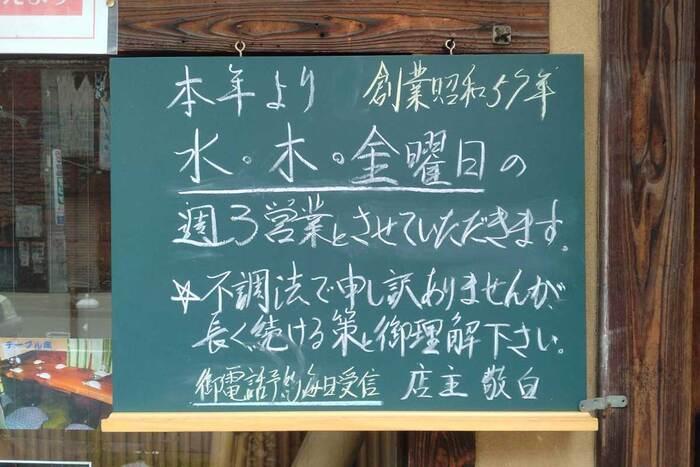 本年より 創業昭和57年
水・木・金曜日の
週3営業とさせていただきます。
☆不調法で申し訳ありませんが、
長く続ける策と御理解下さい。
御電話予約毎日受信 店主 敬白
テーブル席